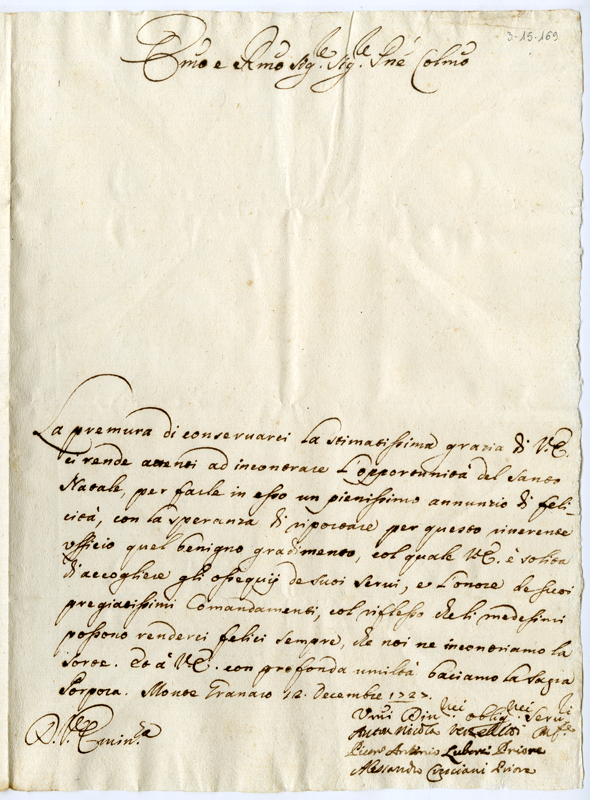 3-15-169
Emo e Rmo Sig.re Sig.re Pne Colmo
La premura di conservarci la stimatissima grazia di V.E.
ci rende attenti ad incontrare l'opportunità del Santo
Natale, per farle in esso un pienissimo annunzio di feli-
cità, con la speranza di riportare per questo riverente
officio quel benigno gradimento, col quale V.E. è solita
d'accogliere gli ossequij de suoi servi, e l'onore de suoi
pregiatissimi Comandamenti, col riflesso che li medesimi
possono renderci felici sempre, che noi ne incontriamo la
sorte. Et à V.E. con profonda umiltà baciamo la Sagra
Porpora. Monte Granaro 12. Decembre 1727.
D. V. Emin.za
Um.i Div.mi oblig.mi Serv.i
Anton Nicola
Pietro Antonio Luberti Priore
Alessandro Cruciani Priore